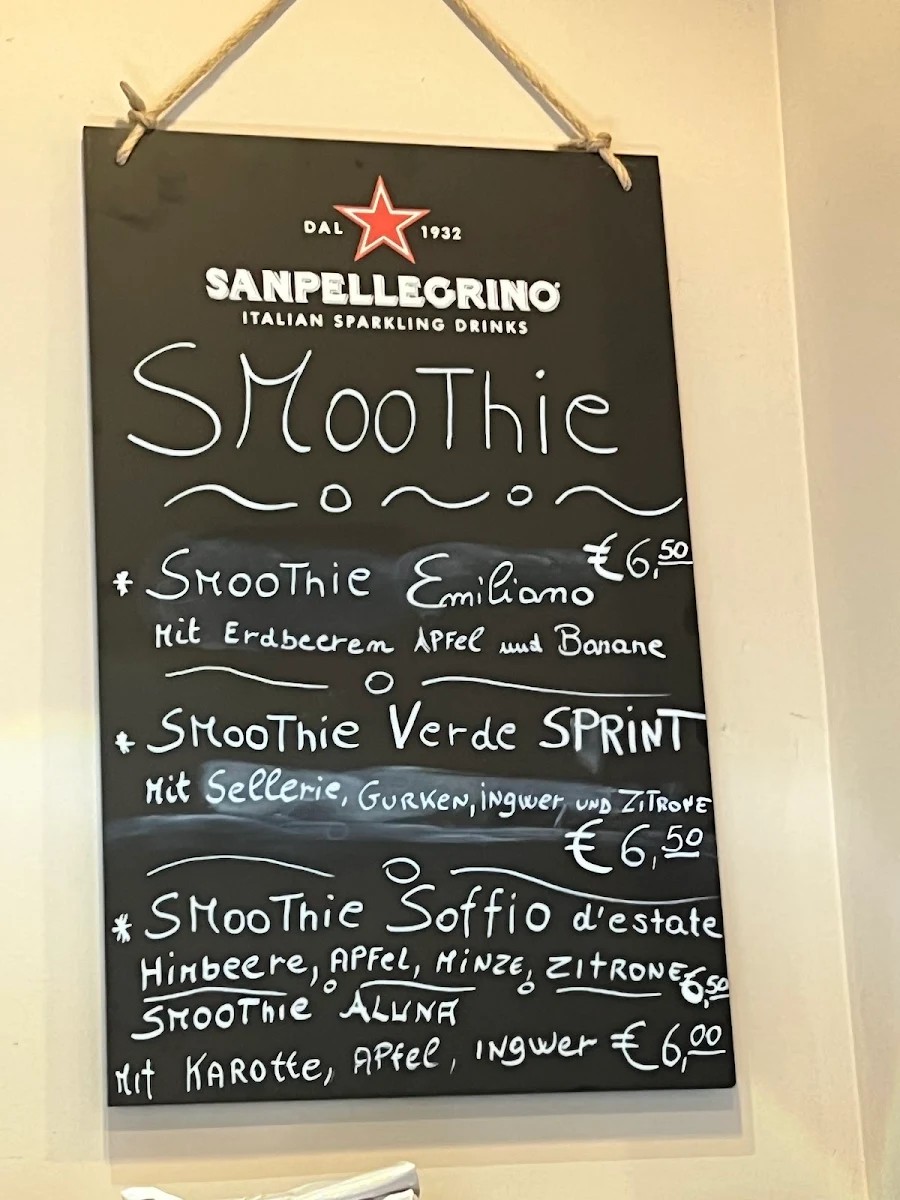 DAL 1932
SANPELLEGRINO
ITALIAN SPARKLING DRINKS
SMOOThie
* SMOOThie Emiliano €6,50
Mit Erdbeeren APFel und Banane
* SMOOThie Verde SPRINT
Mit Sellerie, GURKEN, iNgwer UND ZiTRONE
€ 6,50
* SMOOThie Soffio d'estate
Himbeere, APFel, MiNZE, ZITRONE €6,50
SMOOTHIE ALUNA
Mit KAROtte, APfel, INgwer € 6,00